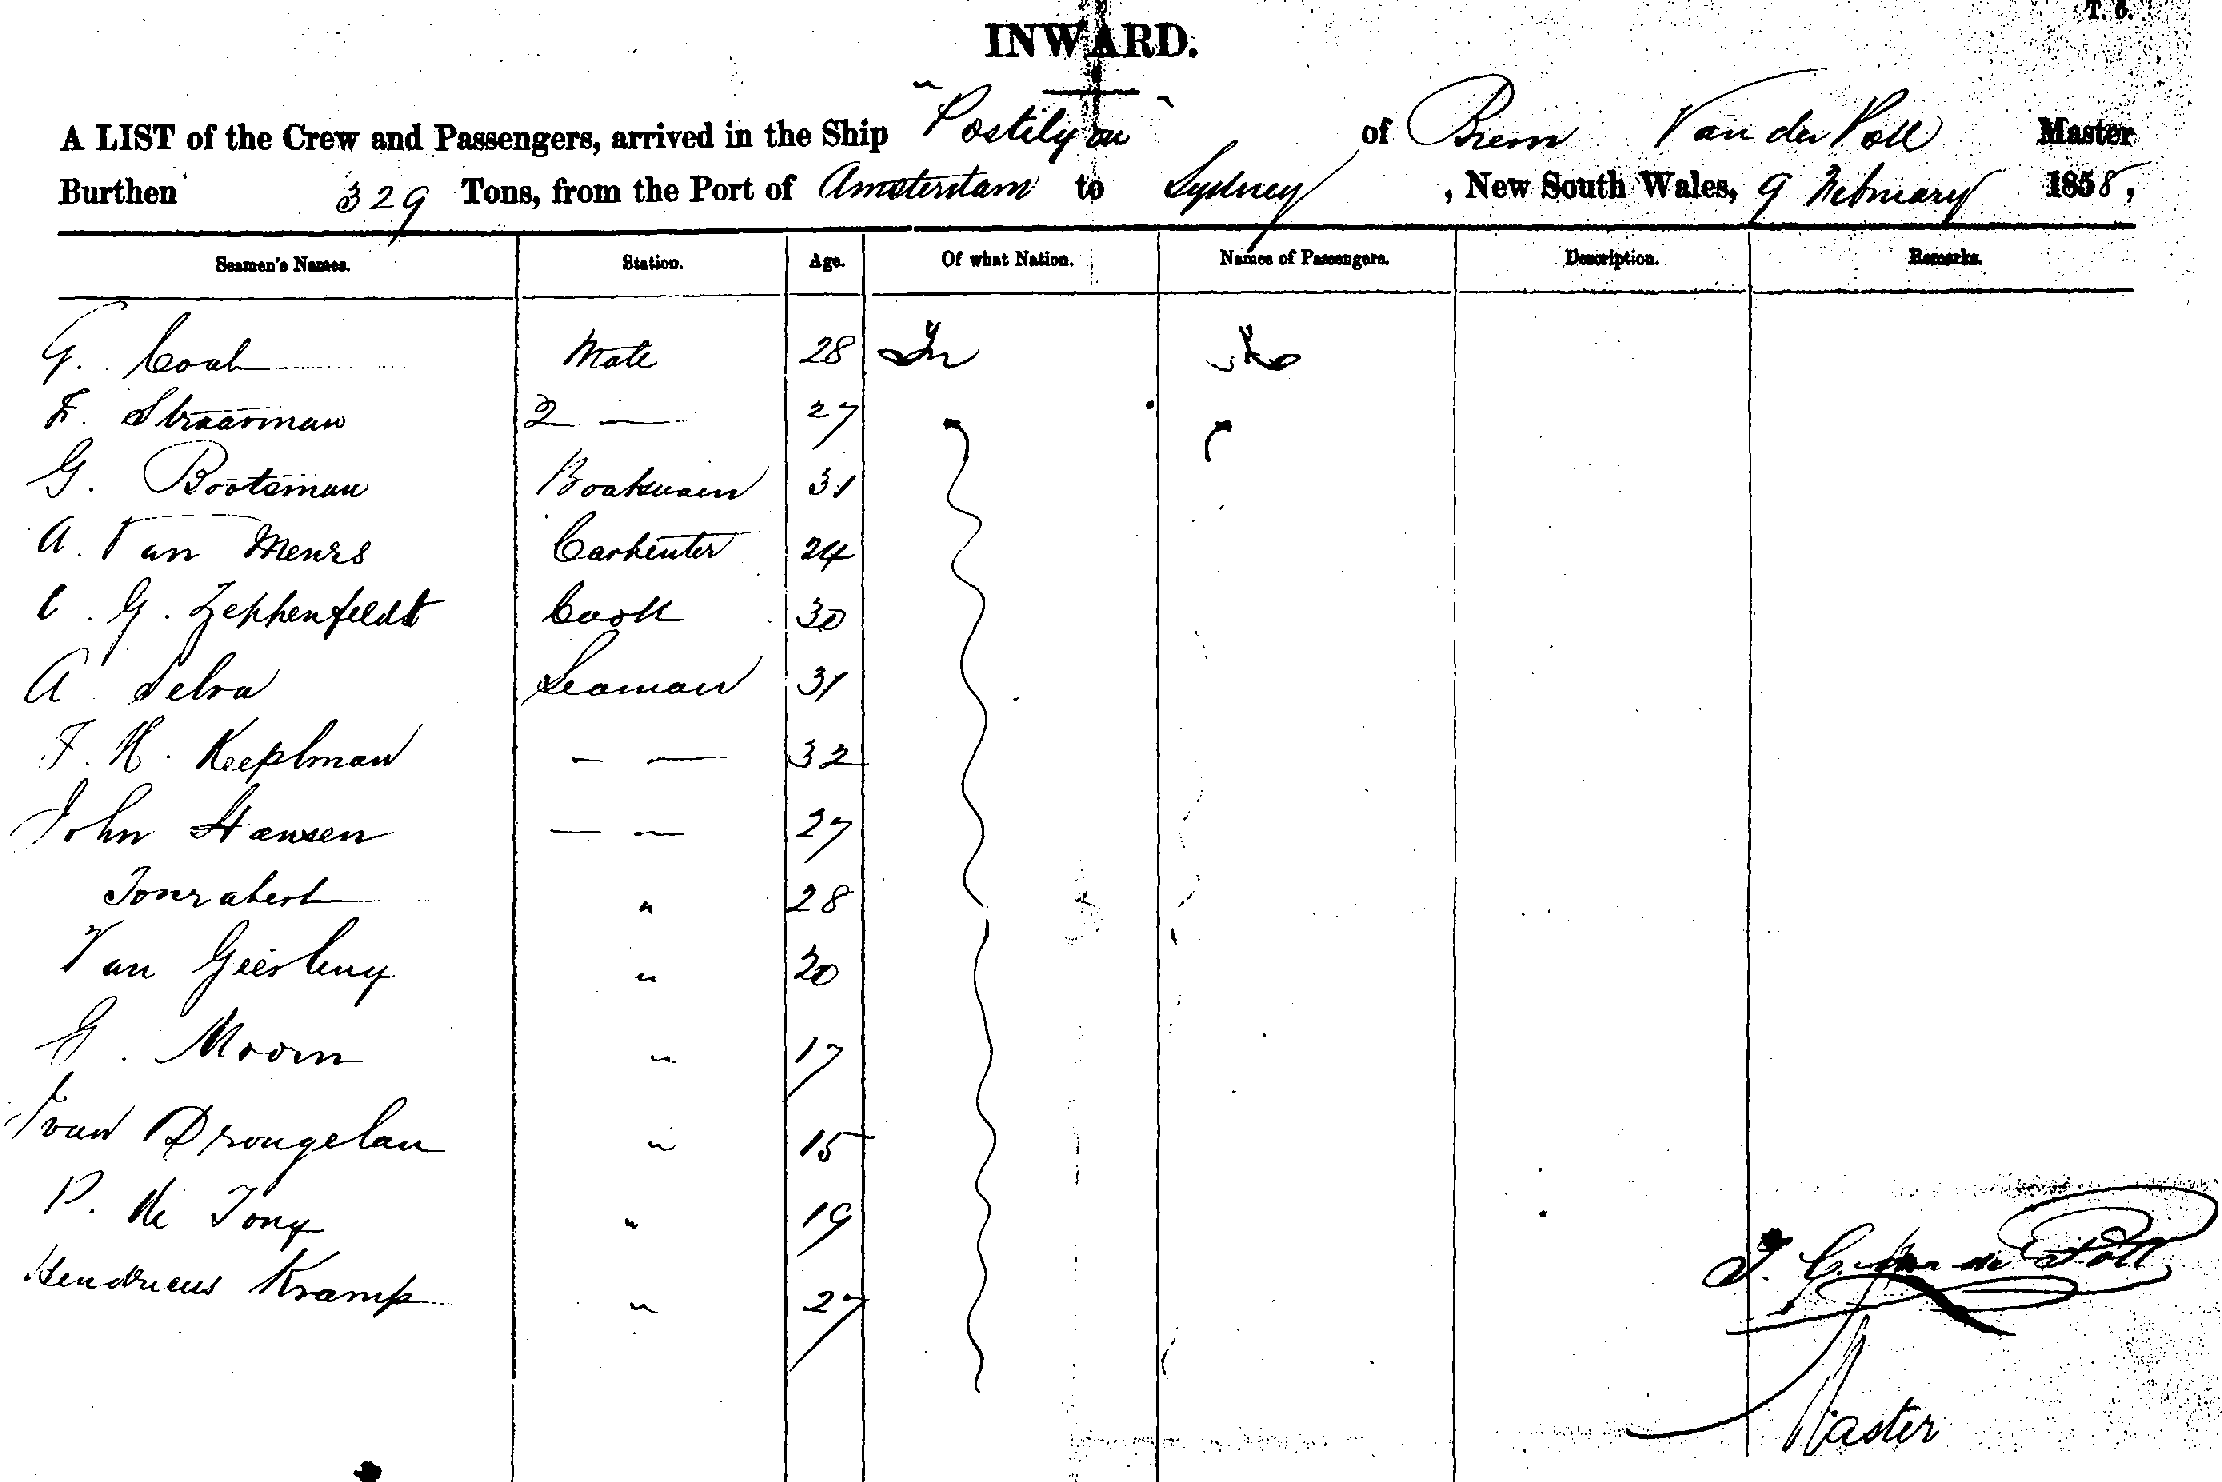 T. 6.
INWARD.
A LIST of the Crew and Passengers, arrived in the Ship "Postilyon" of Brem Van der Poll Master
Burthen 329 Tons, from the Port of Amsterdam to Sydney, New South Wales, 9 February 1858,
Seamen's Names. Station. Age. Of what Nation. Names of Passengers. Description. Remarks.
G. Mate 28
F. Straarman 2 — 27
G. Bootsman Boatswain 31
A. Van Meurs Carpenter 24
C. G. Zeppenfeldt Cook 30
A Selva Seaman 31
F. H. Keeplman — — 32
John Hansen — — 27
" 28
Van " 20
G. Moorn " 17
J van Drongelan " 15
P. de Jong " 19
Hendricus Kramp " 27
J. C. Van der Poll
Master